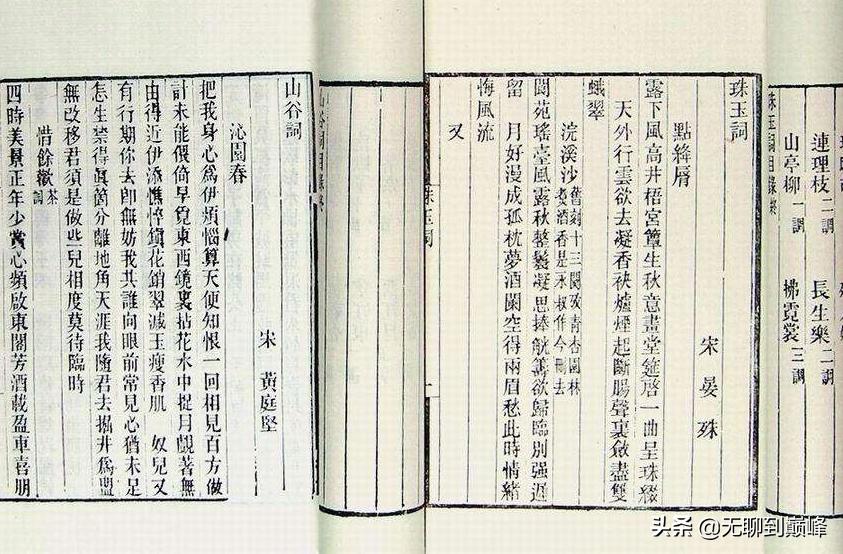 連理枝二調 長生樂二調
山亭柳一調 拂霓裳三調
珠玉詞目錄終
珠玉詞
宋 晏 殊
點絳脣
露下風高井梧宮簟生秋意畫堂筵啓一曲呈珠綴
天外行雲欲去凝香袂爐煙起斷腸聲裏斂盡雙
蛾翠
浣溪沙 舊刻十三闋攷青杏園林
煮酒香是永叔作今刪去
閬苑瑤臺風露秋整鬟凝思捧觥籌欲歸臨別强遲
留 月好漫成孤枕夢酒闌空得兩眉愁此時情緒
悔風流
又
珠玉詞 一
山谷詞目錄終
山谷詞
宋 黃庭堅
沁園春
把我身心爲伊煩惱算天便知恨一回相見百方做
計未能偎倚早覓東西鏡裏拈花水中捉月覷著無
由得近伊添憔悴鎮花銷翠減玉瘦香肌 奴兒又
有行期你去卽無妨我共誰向眼前常見心猶未足
怎生禁得眞箇分離地角天涯我隨君去掘井爲盟
無改移君須是做些兒相度莫待臨時
惜餘歡茶詞
四時美景正年少賞心頻啟東閣芳酒載盈車喜朋
头条 @无聊到巅峰